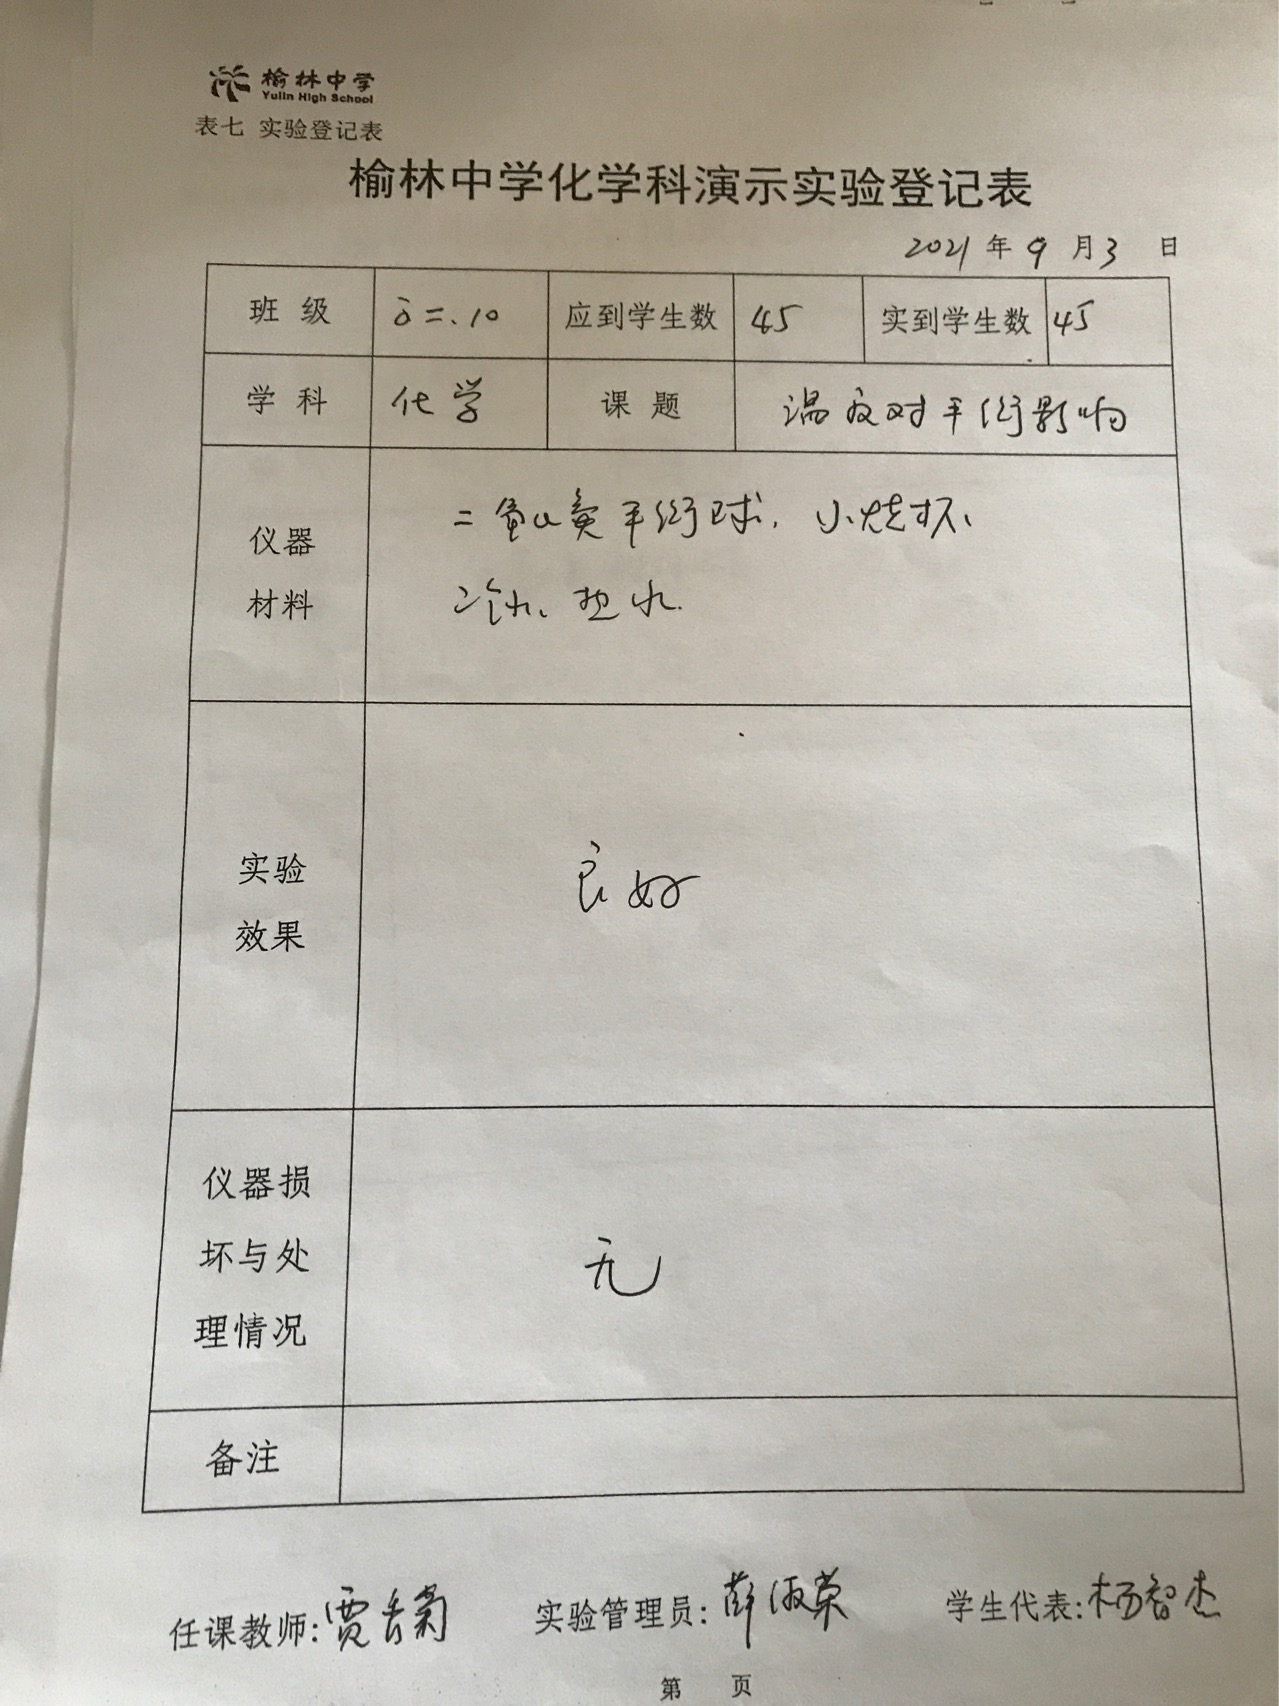 榆林中学
Yulin High School
表七 实验登记表
榆林中学化学科演示实验登记表
2021 年 9 月 3 日
班 级 高二.10 应到学生数 45 实到学生数 45
学 科 化学 课 题 温度对平衡影响
仪器
材料
二氧化氮平衡球、小烧杯、
冷水、热水.
实验
效果
良好
仪器损
坏与处
理情况
无
备注
任课教师: 贾 菊 实验管理员: 薛淑荣 学生代表: 杨智杰
第 页